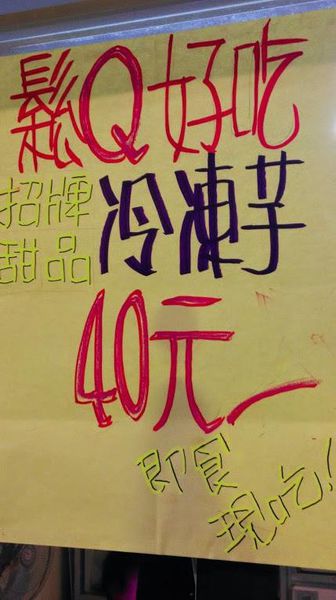 鬆Q好吃
招牌甜品
冷凍芋
40元
即食
現吃!